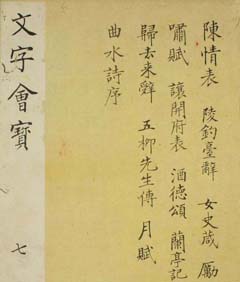 陳情表 陵釣臺辭 女史箴 勵
嘯賦 讓開府表 酒德頌 蘭亭記
歸去来辭 五柳先生傳 月賦
曲水詩序
文字會寶 七